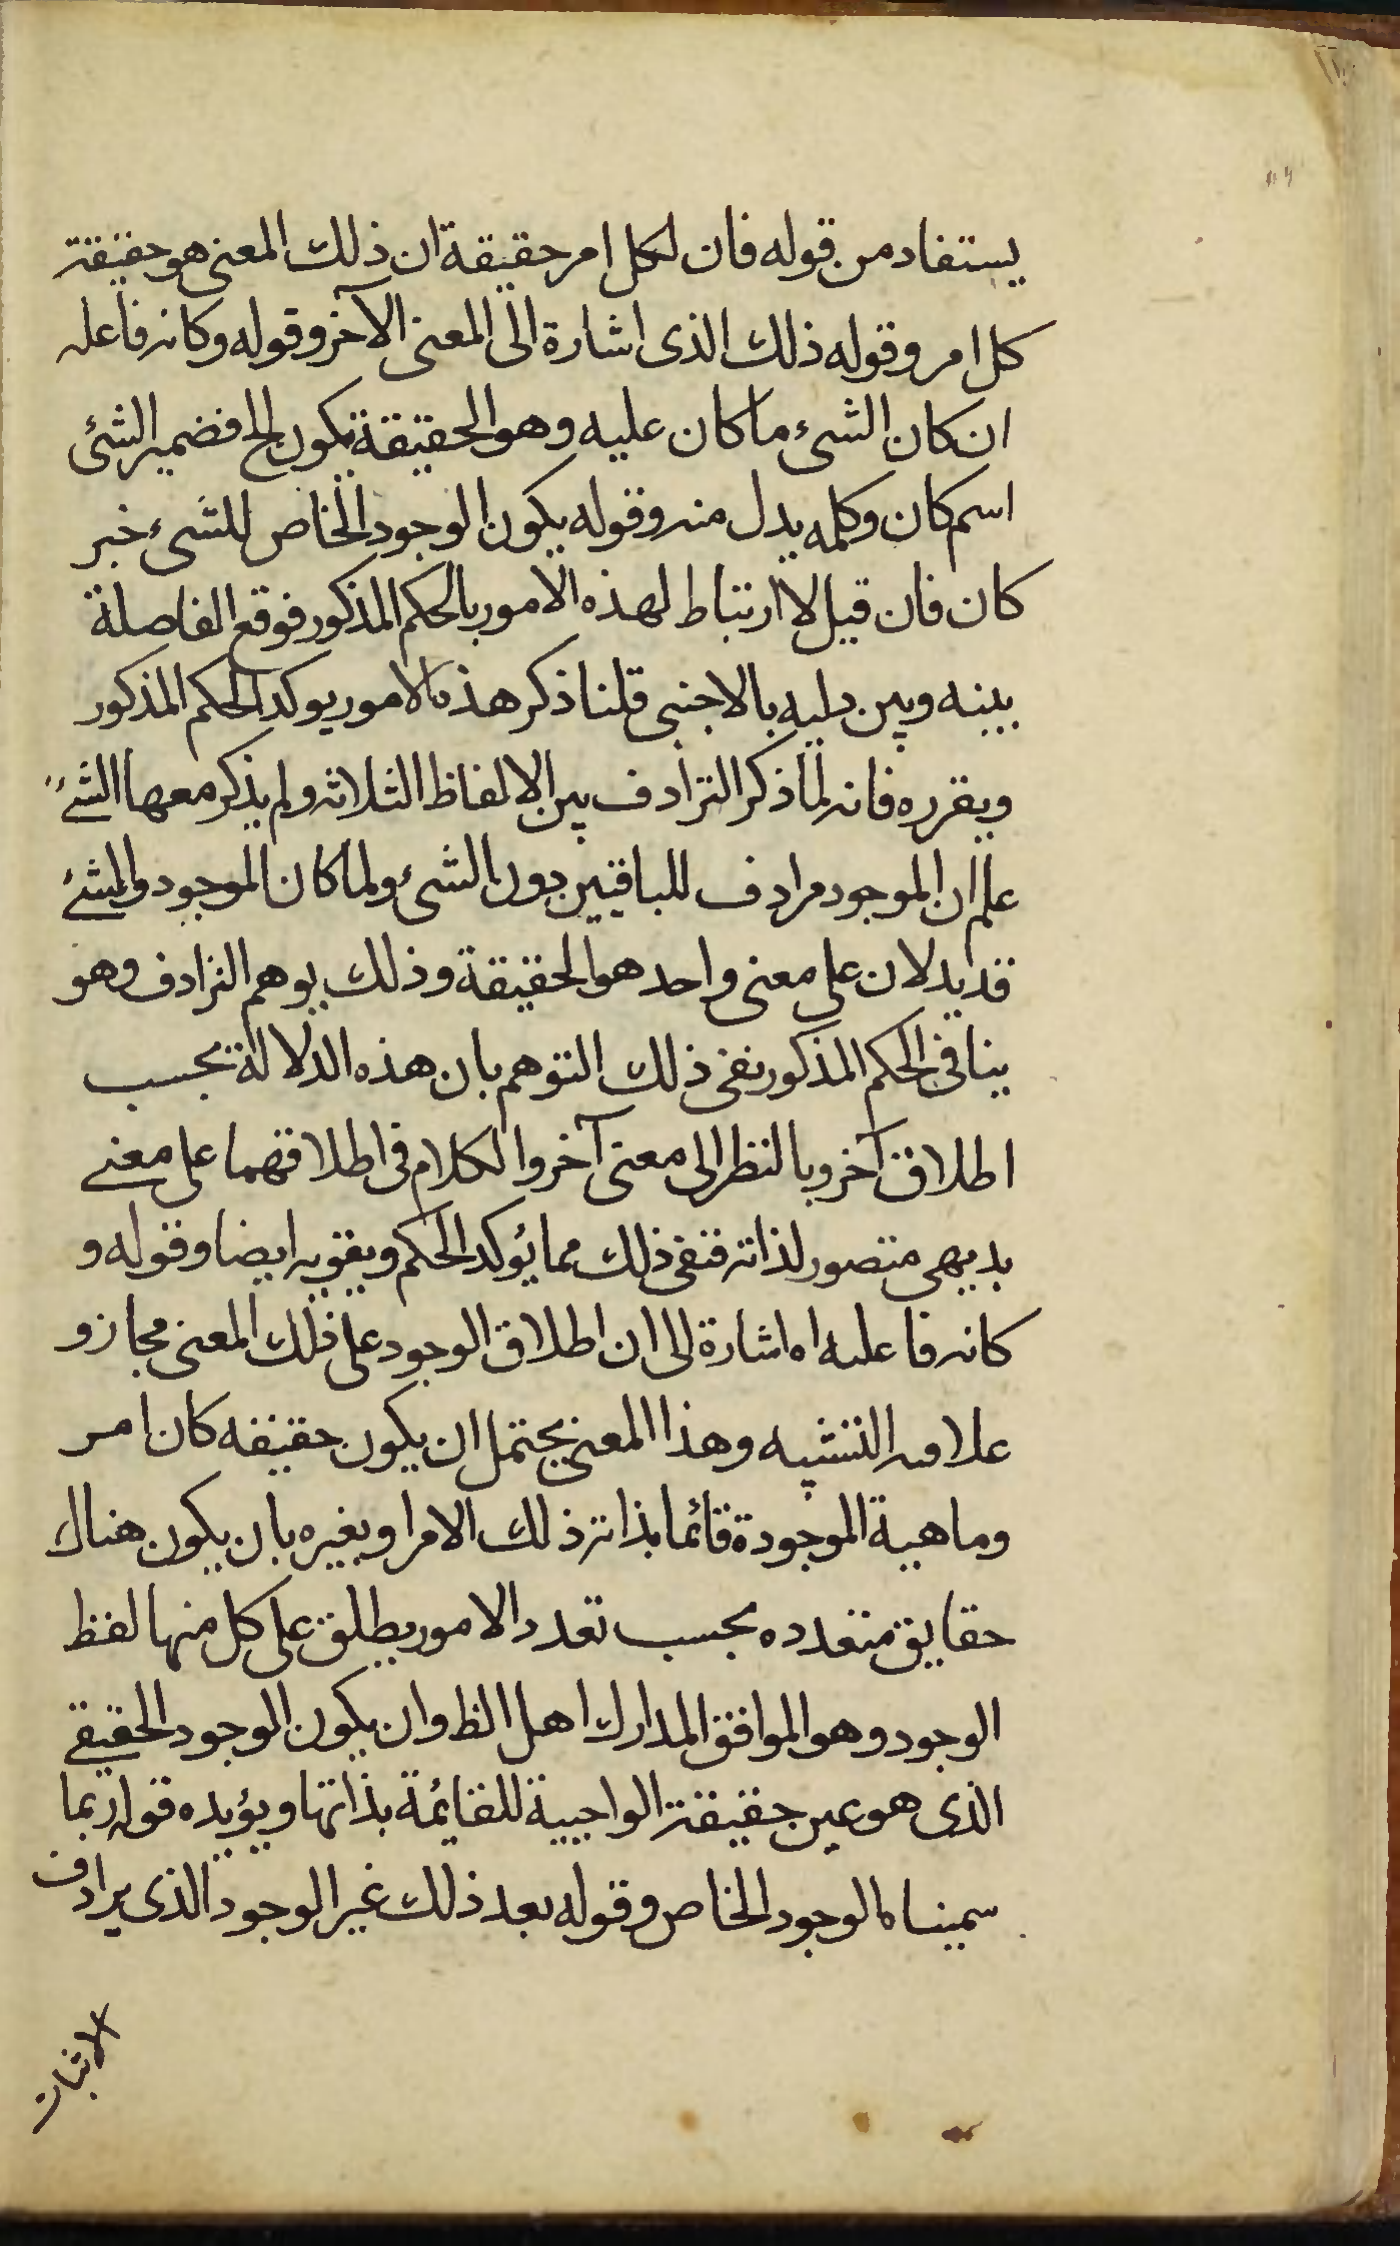 يستفاد من قوله فان لكل امر حقيقة ان ذلك المعنى هو حقيقة
كل امر وقوله ذلك الذى اشارة الى المعنى الآخر وقوله وكانه فاعله
ان كان الشىء ما كان عليه وهو الحقيقة يكون الخ فضمير الشئ
اسم كان وكلمه بدل منه وقوله يكون الوجود الخاص للشىء خبر
كان فان قيل لا ارتباط لهذه الامور بالحكم المذكور فوقع الفاصلة
بينه وبين دليه بالاجنبى قلنا ذكر هذه الامور يوكد الحكم المذكور
ويقرره فانه لما ذكر الترادف بين الالفاظ الثلاثه ولم يذكر معها الشئ
علم ان الموجود مرادف للباقيين دون الشئ ولما كان الموجود والشئ
قد يدلان على معنى واحد هو الحقيقة وذلك يوهم الترادف وهو
ينافى الحكم المذكور نفى ذلك التوهم بان هذه الدلالة بحسب
اطلاق آخر وبالنظر الى معنى آخر والكلام فى اطلاقهما على معنى
بديهى متصور لذاته فنفى ذلك مما يؤكد الحكم ويقويه ايضا وقوله و
كانه فا عليه اه اشارة الى ان اطلاق الوجود على ذلك المعنى مجاز و
علاقته التشبيه وهذا المعنى يحتمل ان يكون حقيقه كان امر
وماهية الموجودة قائما بذاته ذلك الامر او بغيره بان يكون هناك
حقايق متعدده بحسب تعدد الامور يطلق على كل منها لفظ
الوجود وهو الموافق المدارك اهل الظ وان يكون الوجود الحقيقى
الذى هو عين حقيقة الواجبية للقايمة بذاتها ويؤيده قوله ربما
سميناه الوجود الخاص وقوله بعد ذلك غير الوجود الذى يرادف
الاثبات